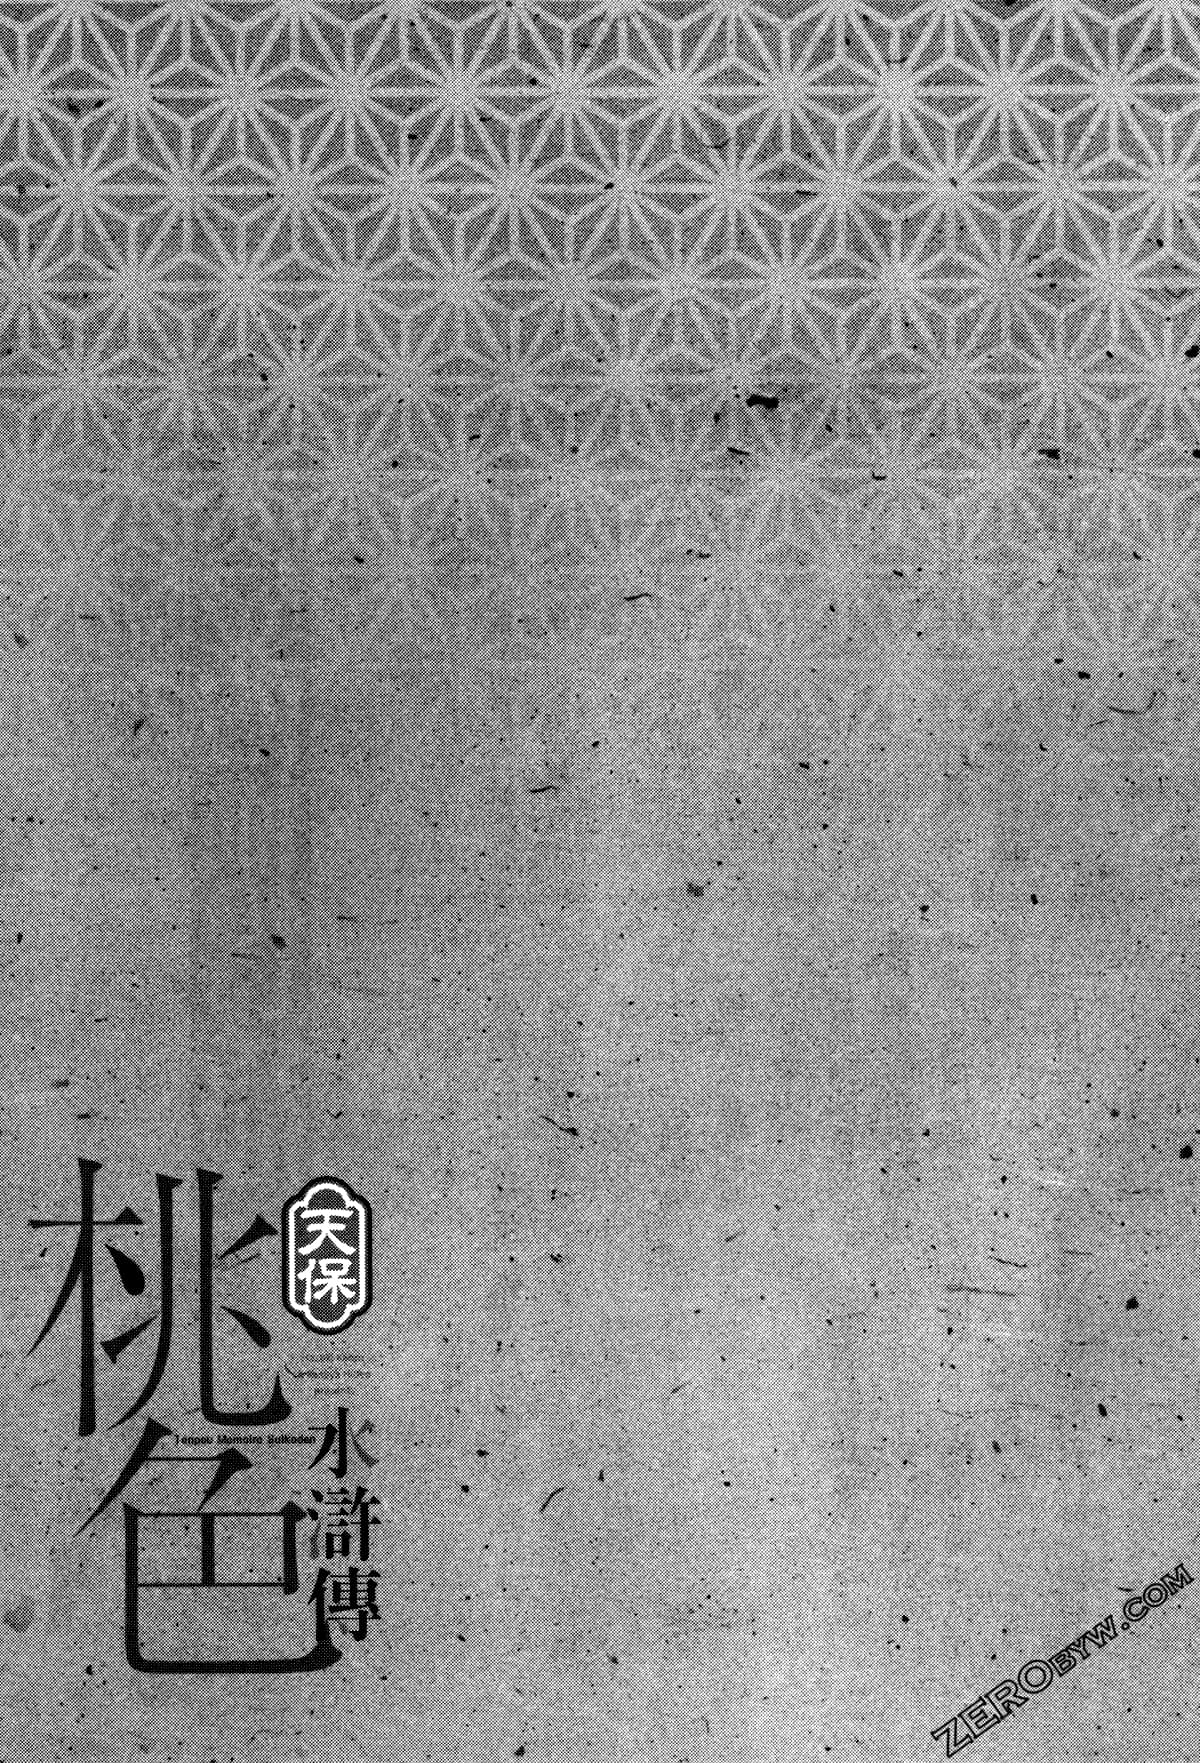 天保
桃色
水滸傳
Tenpou Momoiro Suikoden
presents
ZEROBYW.COM